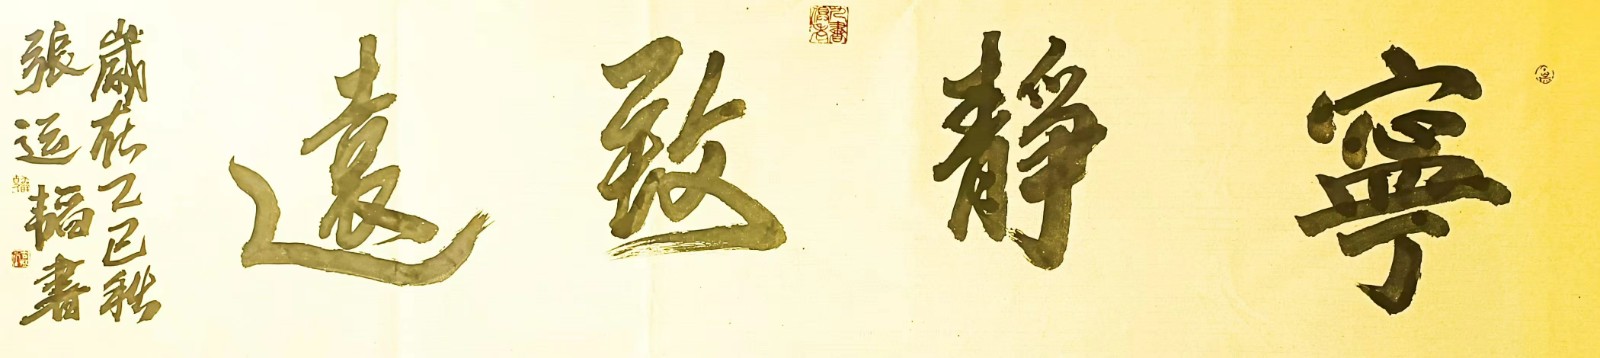 寧靜致遠
歲在乙巳秋
張运韜書